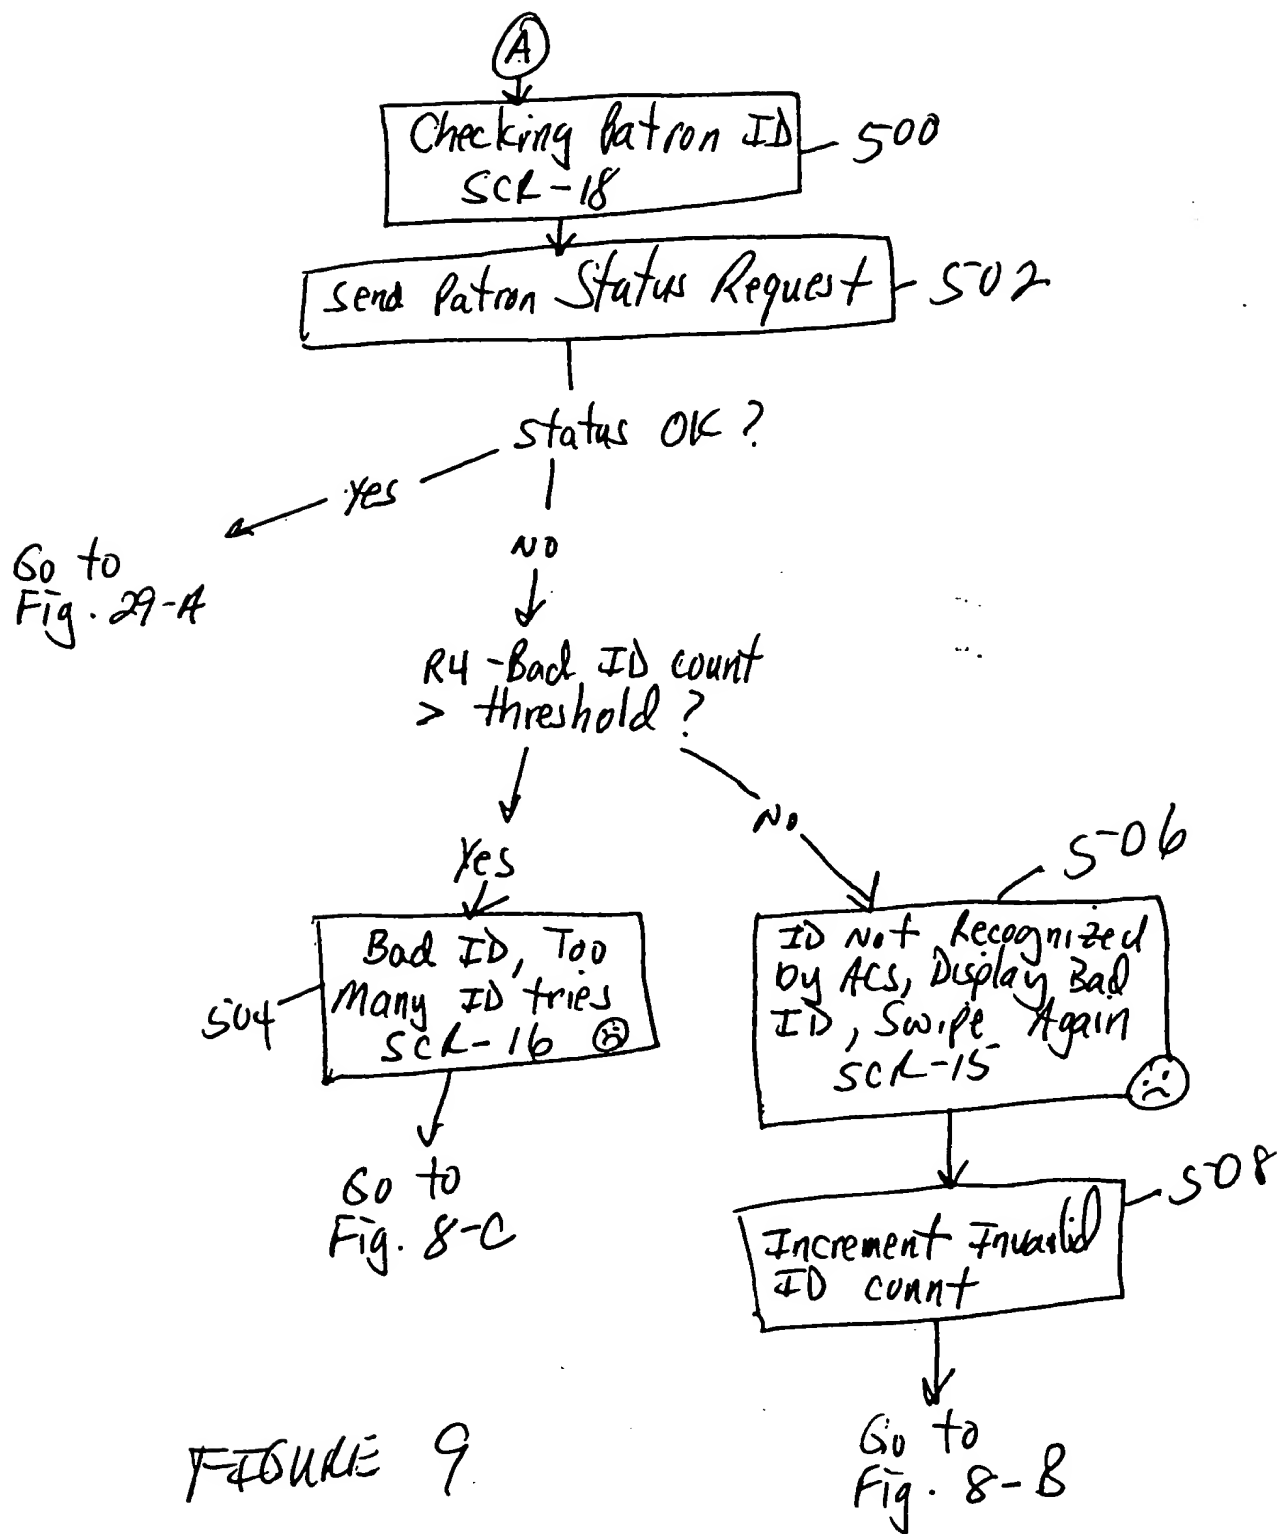 A
Checking Patron ID
SCR-18
500
Send Patron Status Request
502
Status OK?
Yes
Go to
Fig. 29-A
NO
R4-Bad ID count
> threshold?
Yes
No
Bad ID, Too
Many ID tries
SCR-16
504
506
ID Not Recognized
by ACS, Display Bad
ID, Swipe Again
SCR-15
Go to
Fig. 8-C
508
Increment Invalid
ID count
Go to
Fig. 8-B
FIGURE 9